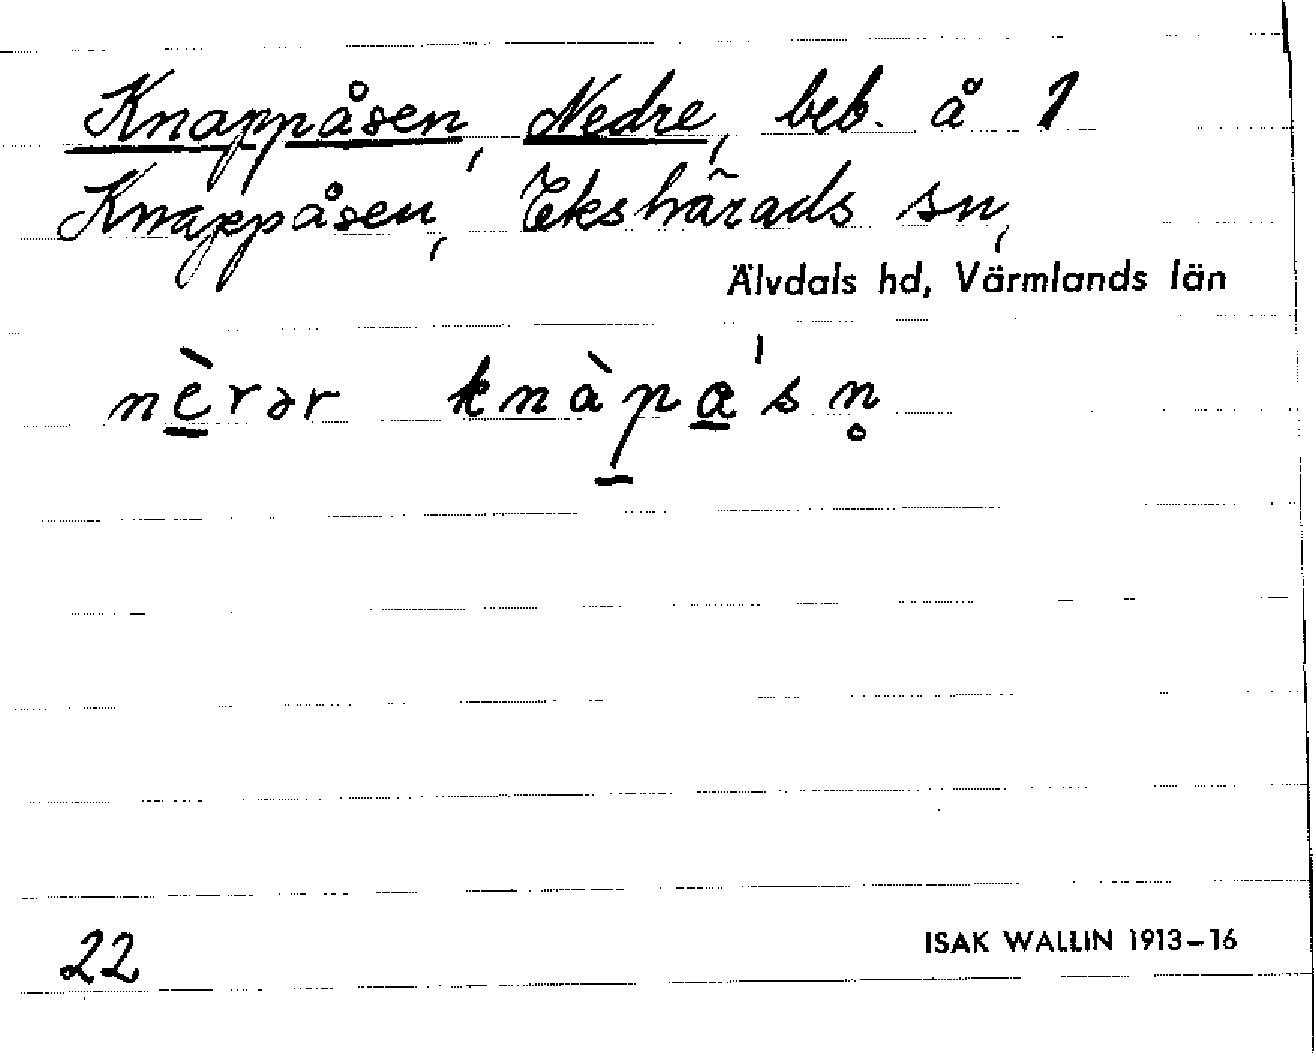 Knappåsen, Nedre, beb. å 1
Knappåsen, Ekshärads sn,
Älvdals hd, Värmlands län
nè̱rər knàp̱a̱'sn̥
22
ISAK WALLIN 1913–16